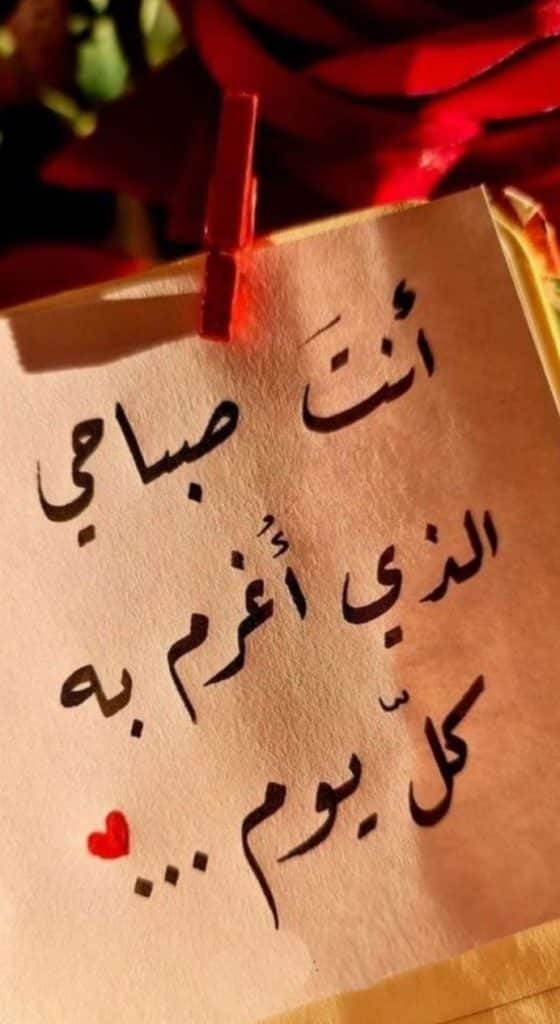 أنتَ صباحي
الذي أُغرم به
كلّ يوم ...